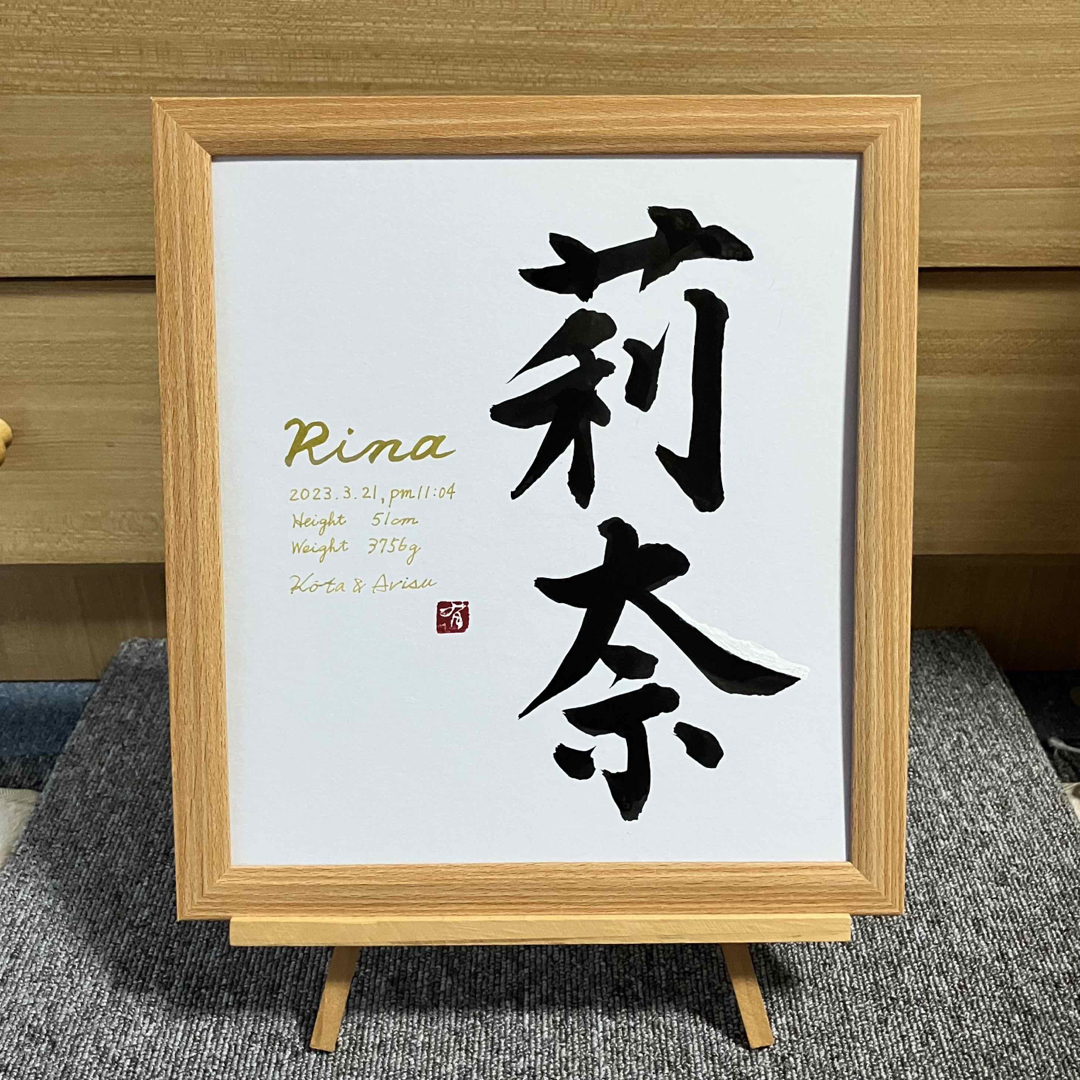 莉奈
Rina
2023.3.21, pm11:04
Height 51cm
Weight 3756g
Kota & Arisu
有